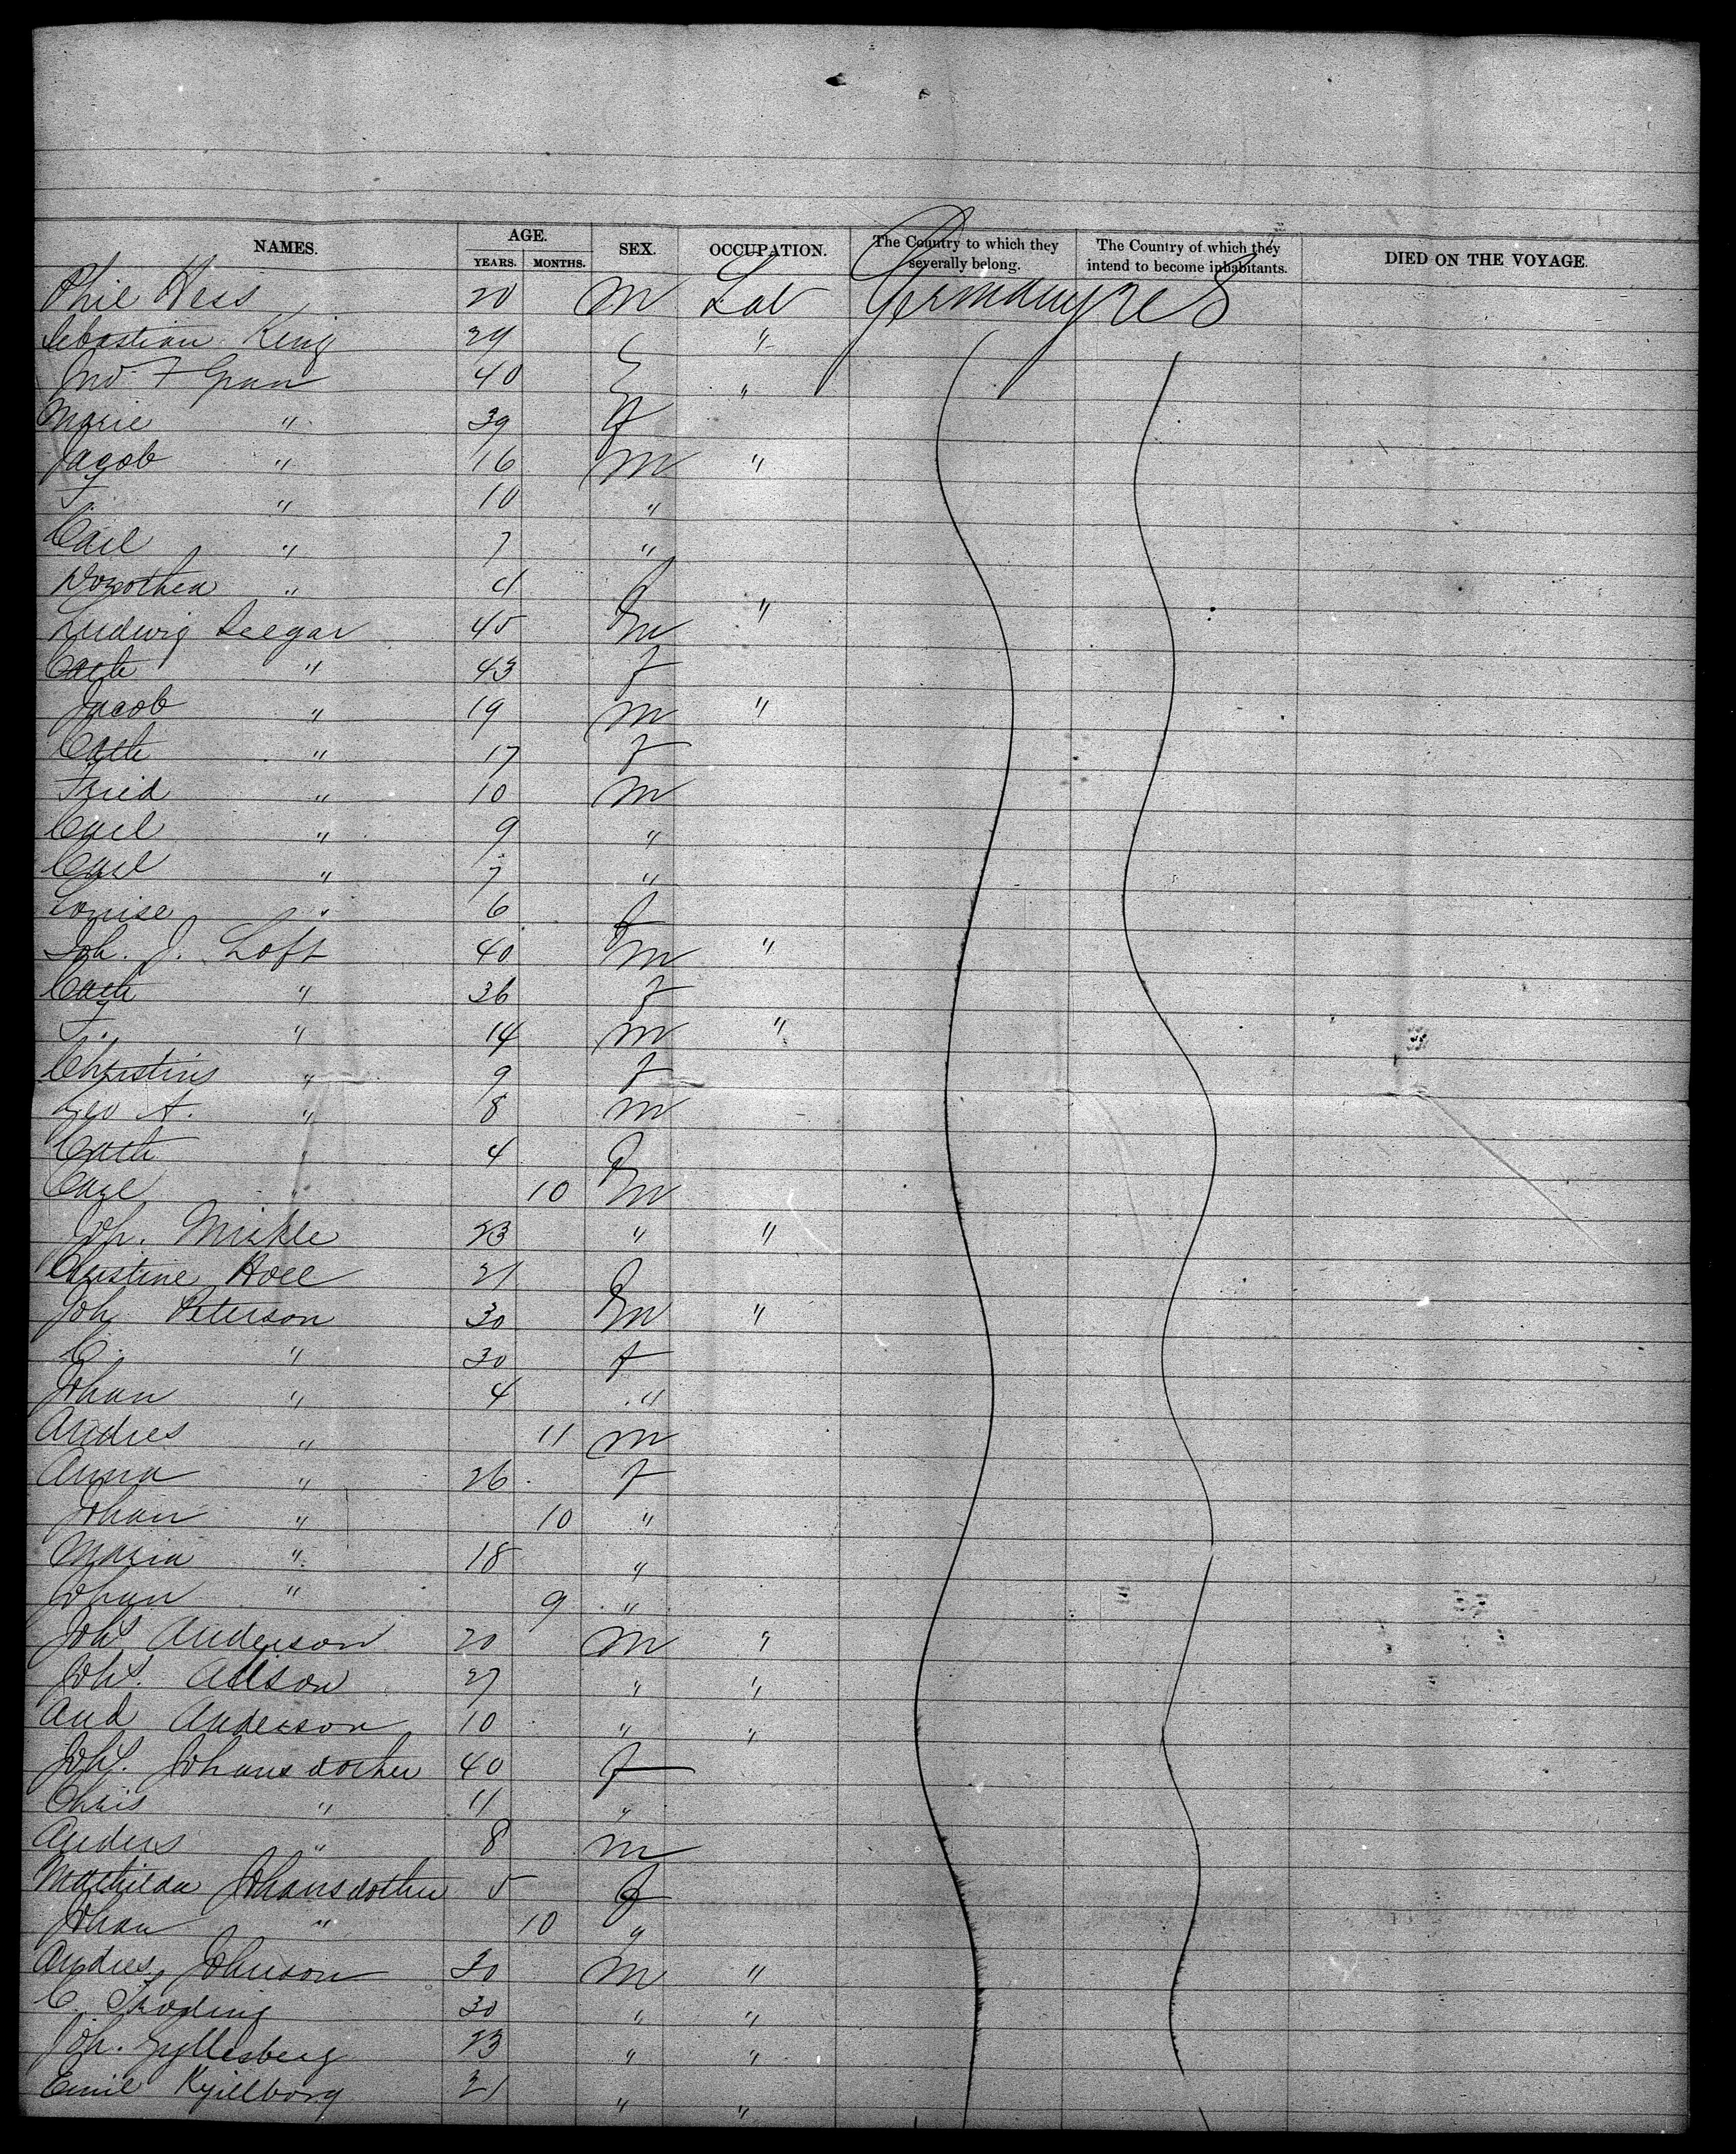 NAMES. AGE. SEX. OCCUPATION. The Country to which they severally belong. The Country of which they intend to become inhabitants. DIED ON THE VOYAGE.
YEARS. MONTHS.
Phil Hess 20 M Lab Germany U S
Sebastian King 29 "
Jno. F 40 "
Marie " 39 f
Jacob " 16 M "
F " 10 "
Carl " 7 "
Dorothea " 4 f
Ludwig Seegar 45 M "
Cath " 43 f
Jacob " 19 M "
Cath " 17 f
Fried " 10 M
Carl " 9 "
Carl " 7 "
Louise " 6 f
Joh. J. Loft 40 M "
Cath " 36 f
F. " 14 M "
Christins " 9 f
Geo A. " 8 M
Cath 4 f
Carl " 10 M
Joh. Mickle 23 " "
Christine Holl 21 f
Joh Peterson 30 M "
C. " 30 f
Johan " 4 "
Andres " 11 M
Anna " 26 f
Johan " 10 "
Maria " 18 "
Johan " 9 "
Johs Anderson 20 M "
Johs. 27 " "
And Anderson 10 " "
Johs. Johansdother 40 f
Chris " 11 "
Anders " 8 M
Mathilda Johansdother 5 f
Johan " 10 "
Andres Johnson 30 M "
C. Skoding 30 " "
Joh. Gyllesberg 23 " "
Emil Kyillborg 21 " "